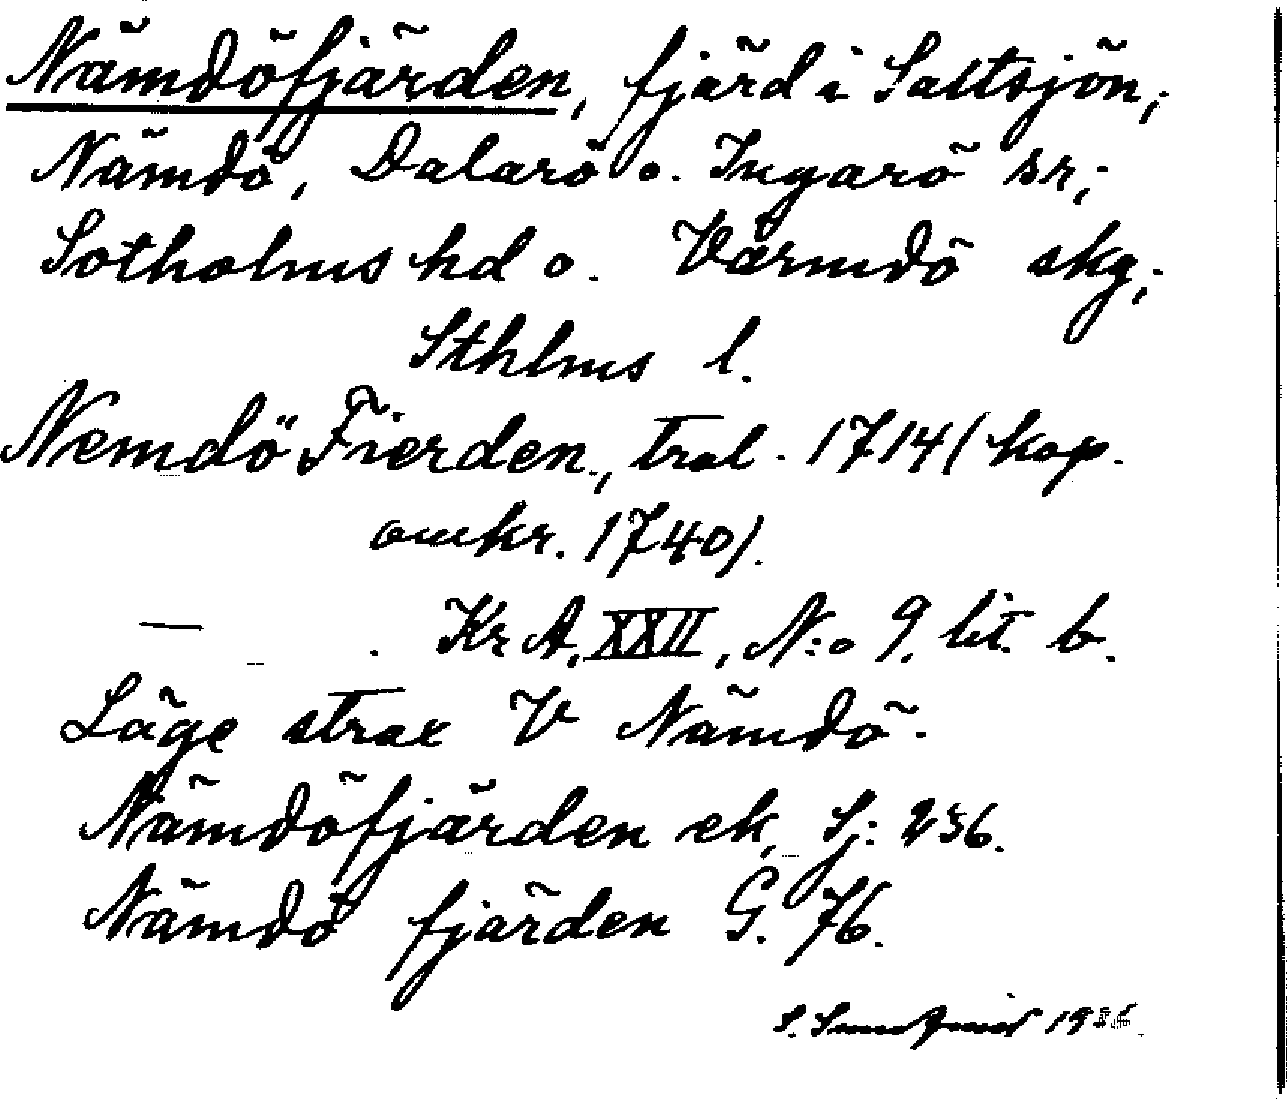 Nämdöfjärden, fjärd i Saltsjön;
Nämdö, Dalarö o. Ingarö snr;
Sotholms hd o. Värmdö skg;
Sthlms l.
Nemdö Fierden, tral. 1714 (kop.
omkr. 1740).
— . Kr A, XXII, N:o 9. lit. b.
Läge strax V Nämdö.
Nämdöfjärden ek, Sj: 236.
Nämdö fjärden G. 76.
S. 19